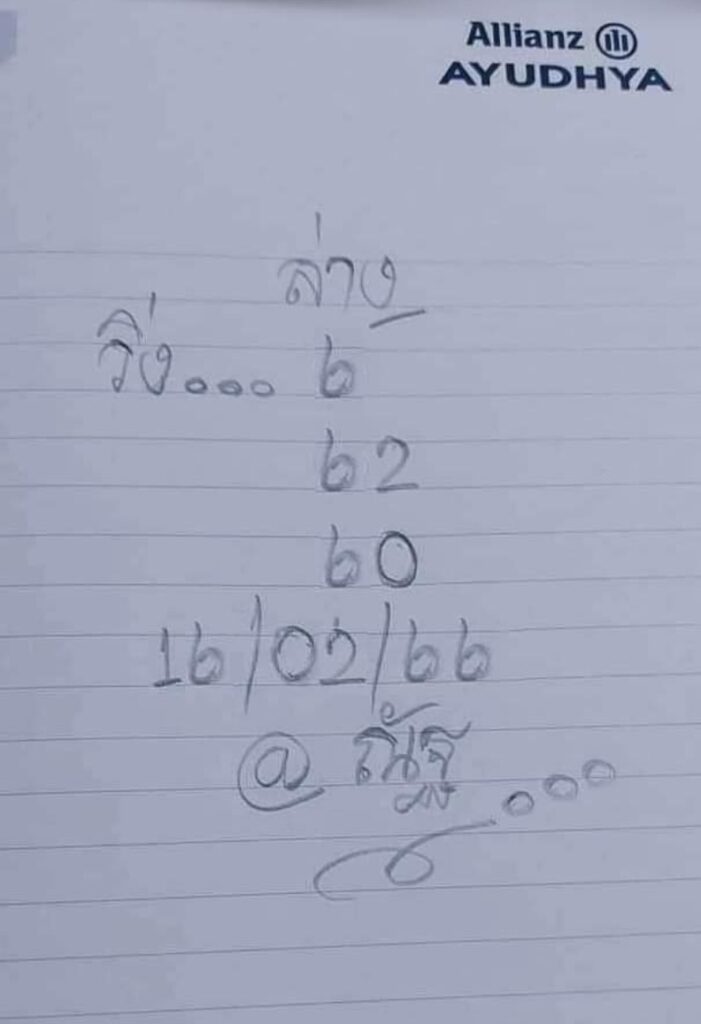 Allianz
AYUDHYA
ล่าง
วิ่ง... 6
62
60
16/02/66
@ ณัฐ...